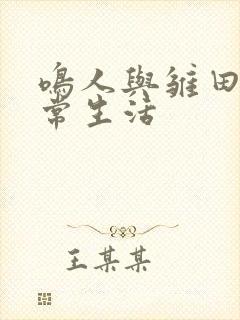 鳴人與雛田
常生活
王某某